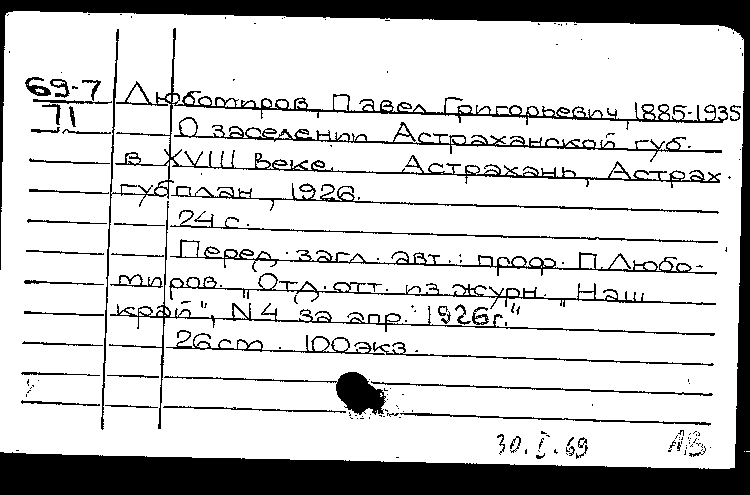 69-7
71
Любомиров, Павел Григорьевич, 1885-1935
О заселении Астраханской губ.
в XVIII веке. Астрахань, Астрах.
губплан, 1926.
24 с.
Перед загл. авт.: проф. П. Любо-
миров. "Отд. отт. из журн. "Наш
край", N 4 за апр. 1926 г."
26 см. 100 экз.
30.I.69 АВ